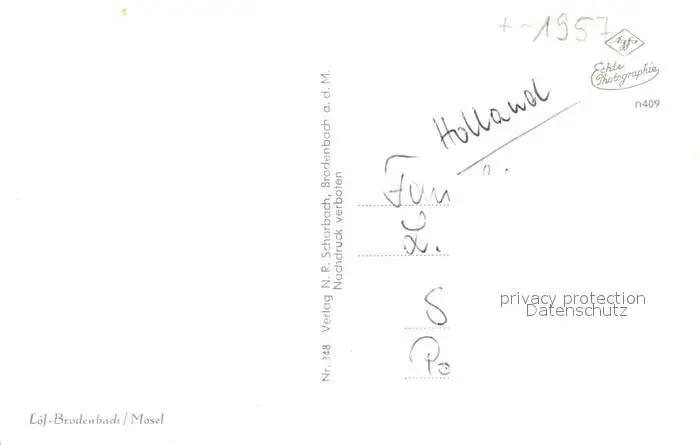 +-1957
Agfa
Echte
Photographie
n409
Holland
Fam
L.
S
Po
privacy protection
Datenschutz
Nr. 348 Verlag N. R. Scharbach, Brodenbach a. d. M.
Nachdruck verboten
Löf-Brodenbach/Mosel